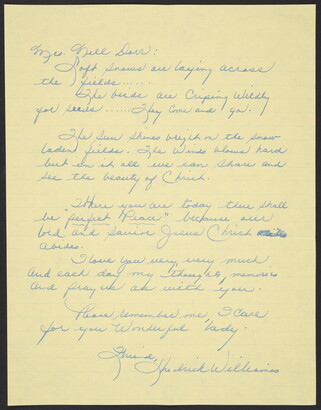 Mrs. Nell Dorr:
Soft snows are laying across
the fields......
The birds are Criping Wildly
for seeds......They come and go.
The Sun shines bright on the snow
laden fields. The Winds blows hard
but in it all we can share and
see the beauty of Christ.
"Where you are today there shall
be "perfect Peace" because our
lord and Savior Jesus Christ
Abides.
I love you very, very much
and each day my thoughts, memories
and prayers are with you.
Please remember me, I care
for you Wonderful lady.
Friend,
Khedrick Williams